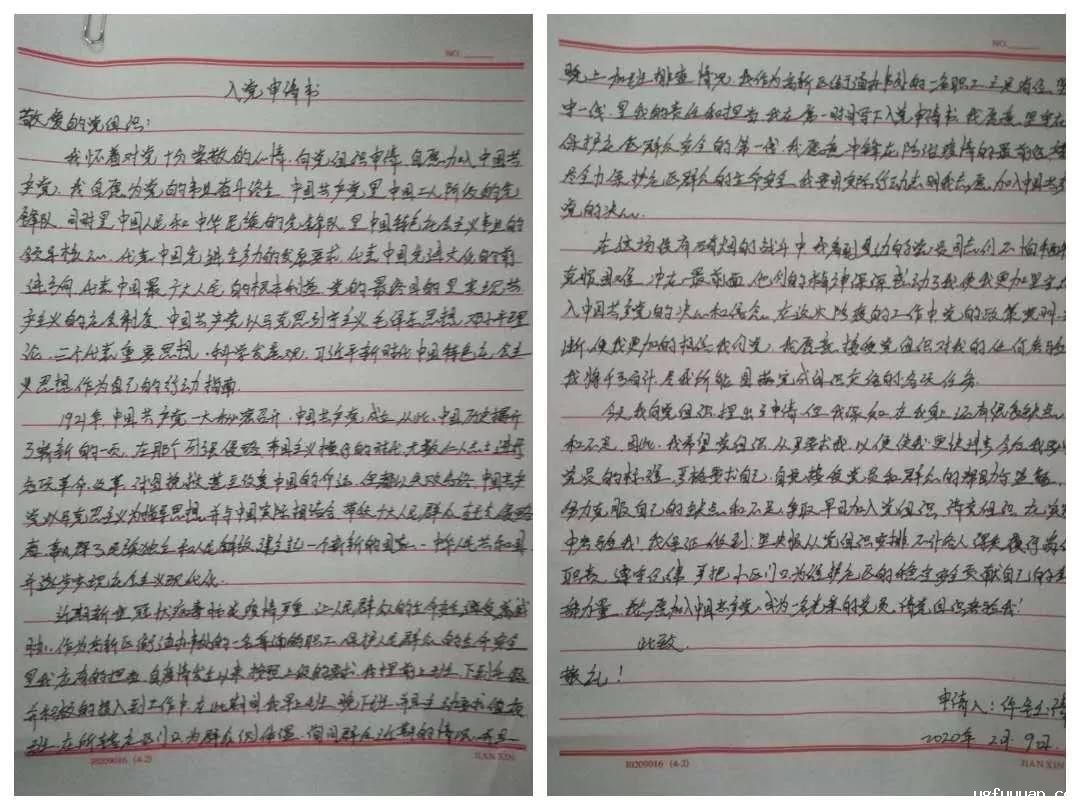 NO.
入党申请书
敬爱的党组织：
我怀着对党十分崇敬的心情，向党组织申请，自愿加入中国共
产党，我自愿为党的事业奋斗终生，中国共产党是中国工人阶级的先
锋队，同时是中国人民和中华民族的先锋队，是中国特色社会主义事业的
领导核心，代表中国先进生产力的发展要求，代表中国先进文化的前
进方向，代表中国最广大人民的根本利益，党的最终目的是实现共
产主义的社会制度，中国共产党以马克思列宁主义，毛泽东思想，邓小平理
论，三个代表重要思想，科学发展观，习近平新时代中国特色社会主
义思想，作为自己的行动指南。
1921年，中国共产党一大秘密召开，中国共产党成立，从此，中国历史揭开
了崭新的一页，在那个列强侵略，帝国主义横行的时代，无数仁人志士进行
各项革命，改革，试图挽救甚至改变中国的命运，但都以失败告终，中国共产
党以马克思主义为指导思想，并与中国实际相结合，带领广大人民群众
取得了民族独立和人民解放，建立起一个崭新的国家，中华人民共和国，
并逐步实现社会主义现代化。
近期新型冠状病毒肺炎疫情严重，让人民群众的生命安全遭受威
胁，作为高新区街道办事处的一名普通的职工，保护人民群众的生命安全
是我应有的担当，自疫情发生以来，按照上级的要求，我提前上班，下到社区
并积极的投入到工作中，在此期间我早上班，晚下班，并且主动要求值夜
班，在所辖社区门口为群众测体温，询问群众近期的情况，并且
R0209016 (4-2)
JIAN XIN
NO.
晚上加班排查情况，我作为高新区街道办事处的一名职工，
一线，是我的责任和担当，我在第一时间写下入党申请书，我愿意坚守在
保护社区群众安全的第一线，我愿意冲锋在防治疫情的最前沿，
尽全力保护社区群众的生命安全，我要用实际行动表明我志愿加入中国共产
党的决心。
在这场没有硝烟的战斗中，我看到身边的党员同志们不怕
克服困难，冲在最前面，他们的精神深深感动了我，使我更加坚定
入中国共产党的决心和信念，在这次防疫的工作中党的政策
使我更加的相信我们党，我愿意接受党组织对我的任何考验
我将不百计，尽我所能圆满完成组织交给的各项任务。
今天，我向党组织提出了申请，但我深知，在我身上还有很多缺点
和不足，因此，我希望党组织从严要求我，以便使我更快进步，今后我要以
党员的标准，严格要求自己，自觉接受党员和群众的帮助与监督，
努力克服自己的缺点和不足，争取早日加入党组织，请党组织在
中考验我！我保证做到：坚决服从党组织安排，不计个人得失，履行
职责，遵守纪律，严把小区门口，为维护社区的稳定安全贡献自己的
力量，我志愿加入中国共产党，成为一名光荣的党员，请党组织考验我！
此致
敬礼！
申请人：
2020年2月9日
R0209016 (4-2)
JIAN XIN
ygfuyuan.co